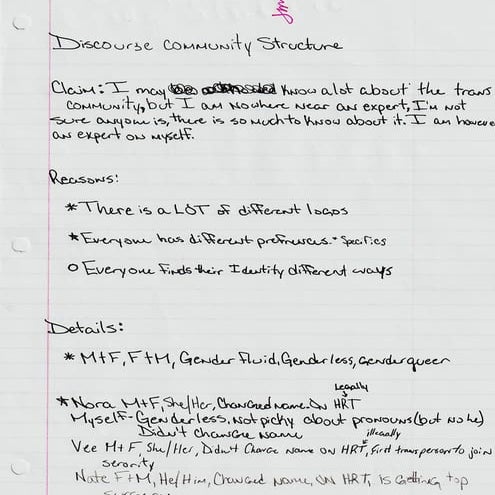 Discourse Community Structure
Claim: I may know a lot about the trans
community, but I am nowhere near an expert, I'm not
sure anyone is, there is so much to know about it. I am howeve
an expert on myself.
Reasons:
* There is a LOT of different
* Everyone has different prefrences. * Specifics
o Everyone finds their Identity different ways
Details:
* M+F, F+M, Gender Fluid, Genderless, genderqueer
legally
* Nora M+F, She/Her, Changed name. On HRT
Myself - Genderless, not picky about pronouns (but no he)
Didn't change name
illegally
Vee M+F, She/Her, Didn't Change Name on HRT, First trans person to join
serority
Nate F+M, He/Him, Changed name, on HRT, is getting top